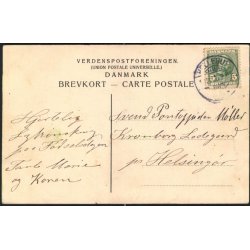 VERDENSPOSTFORENINGEN.
(UNION POSTALE UNIVERSELLE.)
DANMARK
BREVKORT – CARTE POSTALE
5 5
Hjertelig
Lykønskning
paa Fødselsdagen
Tante Marie
og
Svend Pontoppidan Möller
Kronborg Ladegaard
pr. Helsingör.